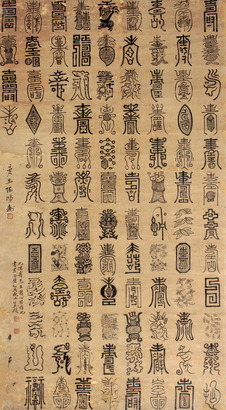 壽壽壽壽壽壽壽壽壽壽壽壽
壽壽壽壽壽壽壽壽壽壽壽壽
壽壽壽壽壽壽壽壽壽壽壽壽
壽壽壽壽壽壽壽壽壽壽壽壽
壽壽壽壽壽壽壽壽壽壽壽壽
壽壽壽壽壽壽壽壽壽壽壽壽
壽壽壽壽壽壽壽壽壽壽壽壽
壽壽壽壽壽壽壽壽壽壽壽壽
壽壽壽壽